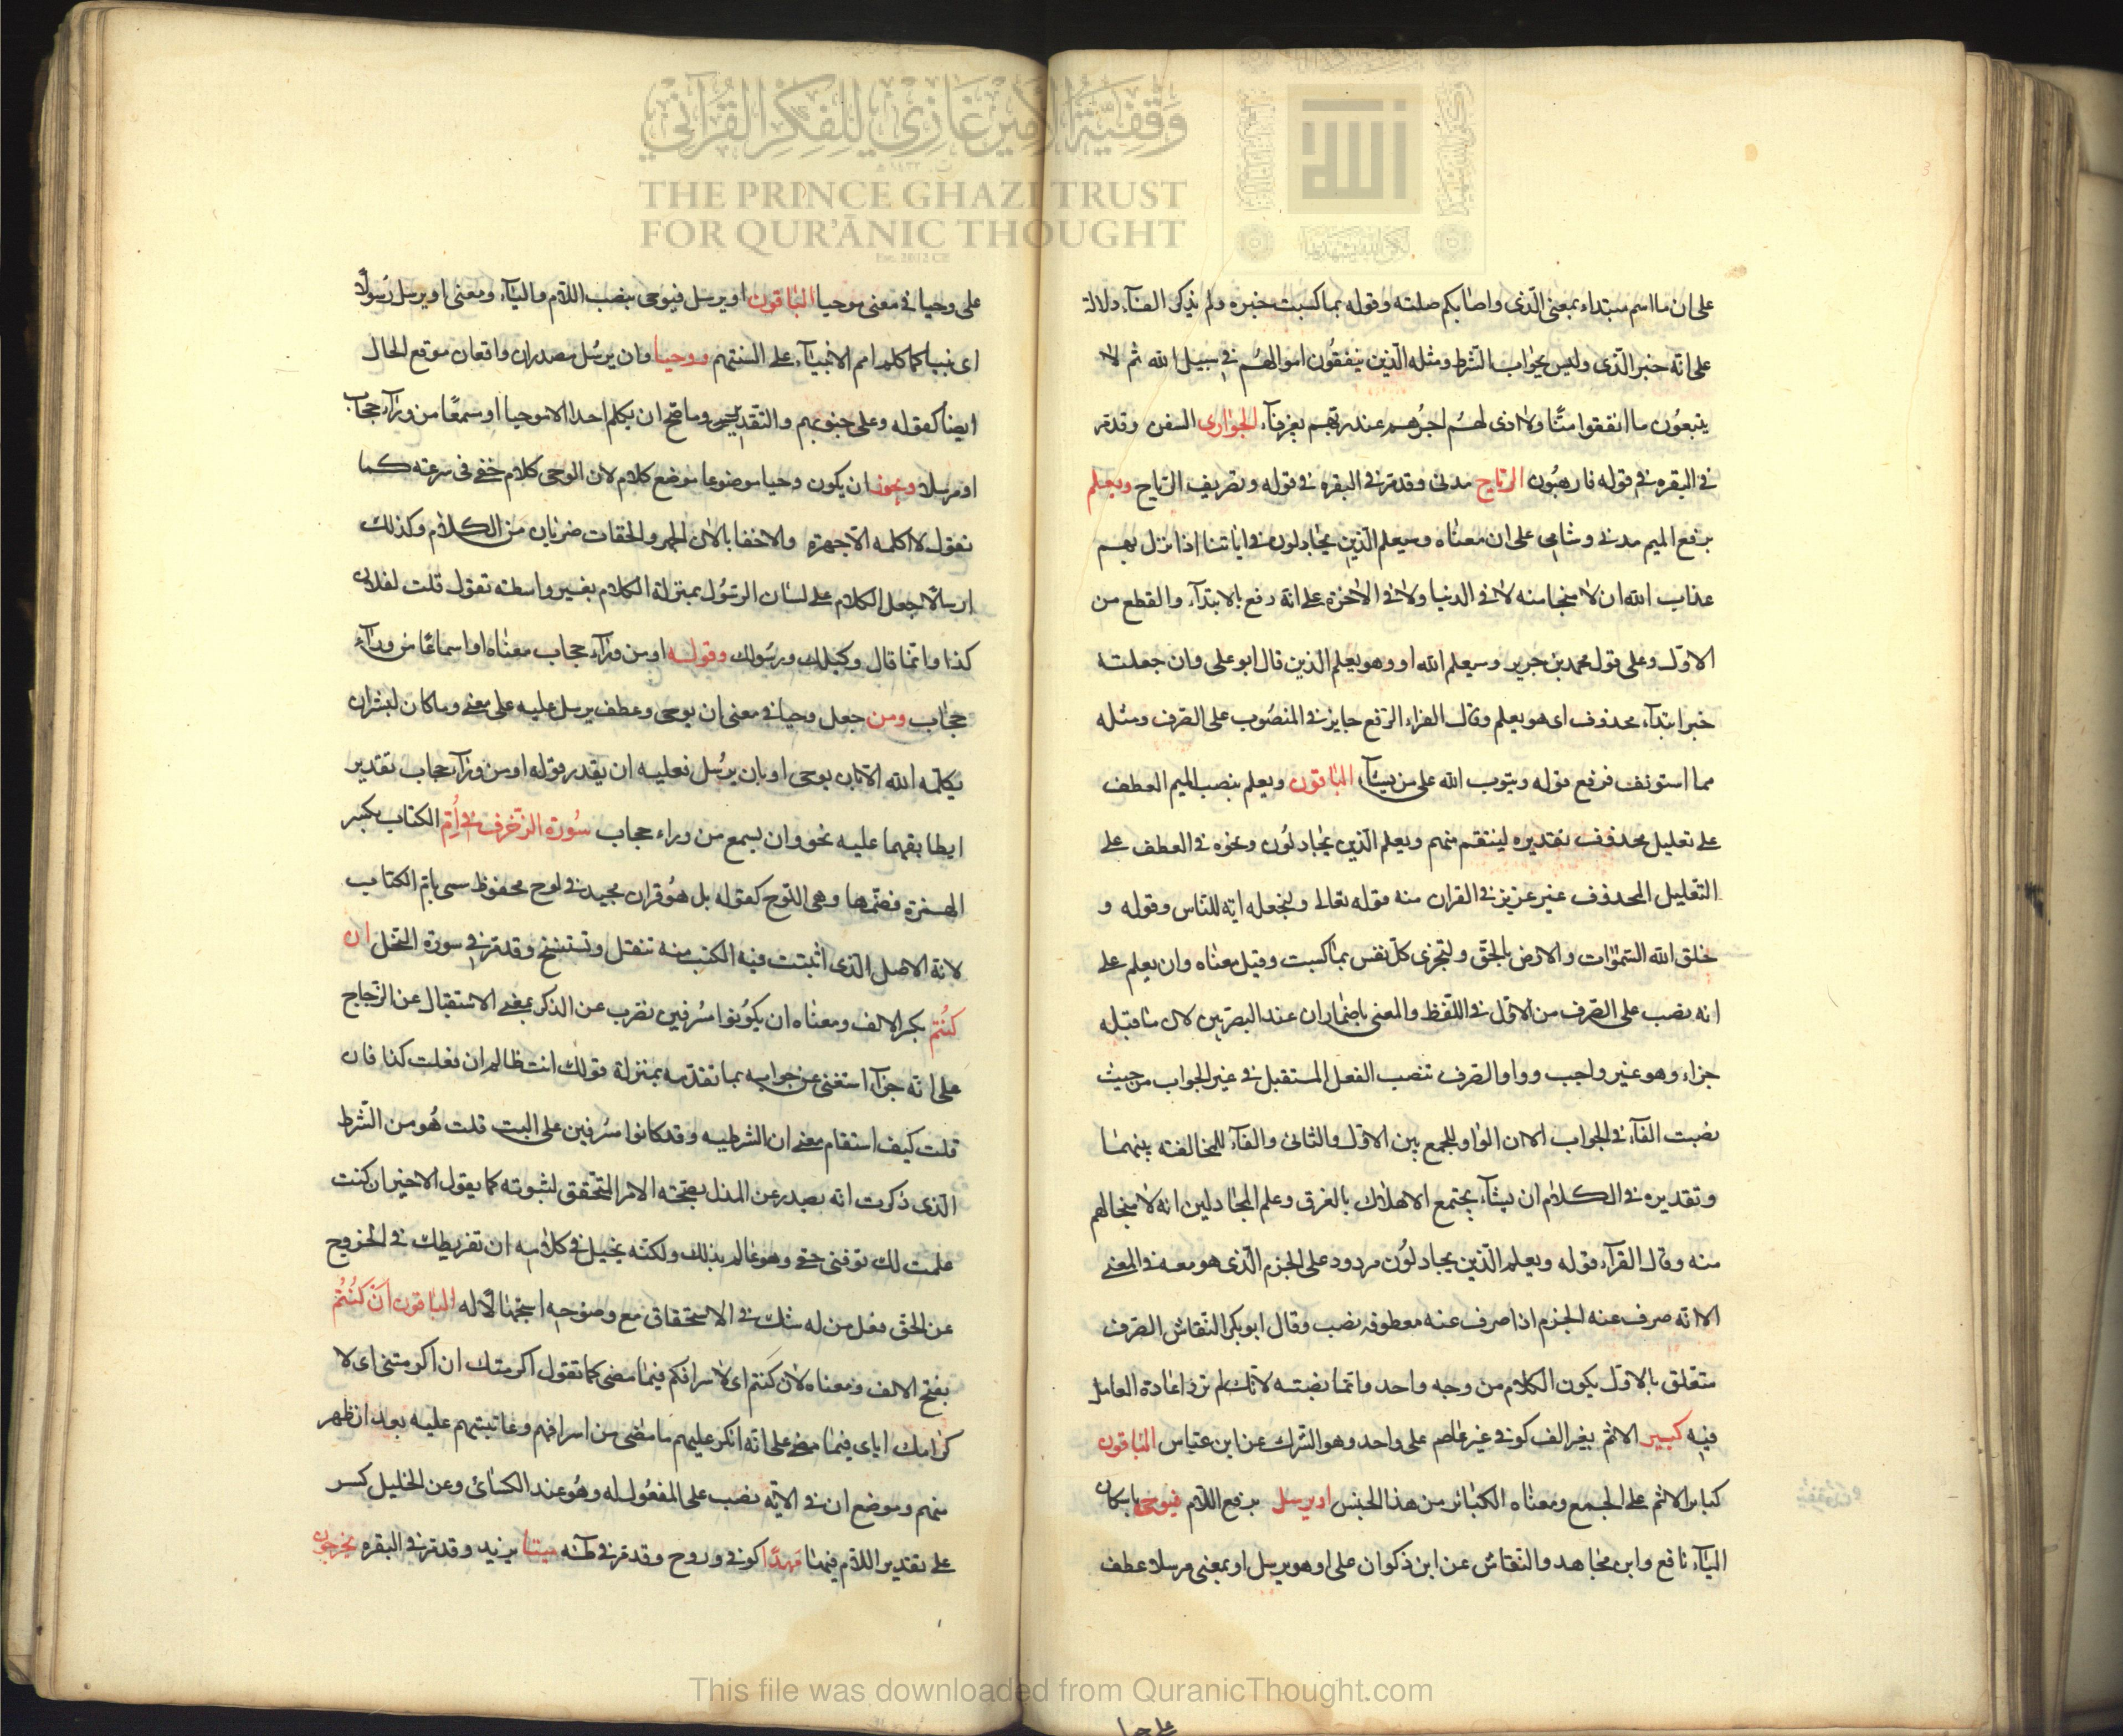 على ان ما اسم مبتداء بمعنى الّذى واصابكم صلته وقوله بما كسبت خبره ولم يذكر الفآء دلالة
على انّه خبر الّذى وليس بجواب الشرط ومثله الّذين ينفقون اموالهم فى سبيل الله ثم لا
يتبعون ما انفقوا منّا ولا اذى لهم اجرهم عند ربّهم بغير فآء الجوارى السفن وقد مرّ
فى البقره فى قوله فارهبون الرّياح مدنى وقد مرّ فى البقره فى قوله وتصريف الرّياح ويعلم
برفع الميم مدنى وشامى على ان معناه وسيعلم الّذين يجادلون فى اياتنا اذا نزل بهم
عذاب الله ان لا منجا منه لا فى الدنيا ولا فى الاخرة على انّه رفع بالابتدآء والقطع من
الاوّل وعلى قول محمد بن جرير وسيعلم الله او وهو يعلم الّذين قال ابو على وان جعلته
خبر ابتدآء محذوف اى هو يعلم وقال الفراء الرّفع جايز فى المنصوب على الصّرف ومثله
مما استونف فرفع قوله ويتوب الله على من يشآء الباقون ويعلم بنصب الميم العطف
على تعليل محذوف تقديره لينتقم منهم ويعلم الّذين يجادلون ونحوه فى العطف على
التّعليل المحذوف غير عزيز فى القران منه قوله تعالى ولنجعله اية للنّاس وقوله و
خلق الله السّموات والارض بالحقّ ولتجزى كلّ نفس بما كسبت وقيل معناه وان يعلم على
انه نصب على الصّرف من الاوّل فى اللّفظ والمعنى باضمار ان عند البصريين لان ما قبله
جزاء وهو غير واجب وواو الصّرف تنصب الفعل المستقبل فى غير الجواب من حيث
نصبت الفآء فى الجواب الا ان الواو للجمع بين الاوّل والثانى والفآء للمخالفه بينهما
وتقديره فى الكلام ان يشآء يجتمع الاهلاك بالغرق وعلم المجادلين انه لا منجا لهم
منه وقال القرآء قوله ويعلم الّذين يجادلون مردود على الجزم الّذى هو معه فى المعنى
الا انّه صرف عنه الجزم اذا صرف عنه معطوفه نصب وقال ابو بكر النّقاش الصّرف
متعلق بالاوّل يكون الكلام من وجه واحد وانّما نصبته لانّك لم ترد اعادة العامل
فيه كبير الاثم بغير الف كوفى غير عاصم على واحد وهو الشّرك عن ابن عبّاس الباقون
كبائر الاثم على الجمع ومعناه الكبائر من هذا الجنس او يرسل برفع اللّام فيوحى باسكان
اليآء نافع وابن مجاهد والنّقاش عن ابن ذكوان على او هو يرسل او بمعنى مرسلا عطف
على وحيا فى معنى موحيا الباقون او يرسل فيوحى بنصب اللّام واليآء ومعنى او يرسل رسولًا
اى نبيا كما كلم امم الانبيآء على السنتهم ووحيا وان يرسل مصدران واقعان موقع الحال
ايضا كقوله وعلى جنوبهم والتّقدير وما صحّ ان يكلم احدا الا موحيا او سمعًا من ورآء حجاب
او مرسلا ويجوز ان يكون وحيا موضوعا موضع كلام لان الوحى كلام خفى فى سرعته كما
تقول لا اكلمه الّا جهرة والا خفا بالان الجهر والخفات ضربان من الكلام وكذلك
ارسالا جعل الكلام على لسان الرسول بمنزلة الكلام بغير واسطة تقول قلت لفلان
كذا وانما قال وكيلك ورسولك وقوله او من ورآء حجاب معناه او اسماعًا من ورآء
حجاب ومن جعل وحيا فى معنى ان يوحى وعطف يرسل عليه على معنى وما كان لبشر ان
يكلّمه الله الّا بان يوحى او بان يرسل فعليه ان يقدر قوله او من ورآء حجاب تقدير
ايطابقهما عليه نحو وان يسمع من وراء حجاب سورة الزّخرف فى أمّ الكتاب بكسر
الهمزة فضمّها وهى اللّوح كقوله بل هو قران مجيد فى لوح محفوظ سمى بامّ الكتاب
لانّه الاصل الّذى اثبتت فيه الكتب منه تنقل وتستنسخ وقد مرّ فى سورة النّحل ان
كنتم بكسر الالف ومعناه ان يكونوا مسرفين نضرب عن الذكر بمعنى الاستقبال عن الزّجاج
على انّه جزآء استغنى عن جوابه بما تقدّمه بمنزلة قولك انت ظالم ان فعلت كذا فان
قلت كيف استقام معنى ان الشرطيه وقد كانوا مسرفين على البت قلت هو من الشّرط
الّذى ذكرت انّه يصدر عن المدل بصحّة الامر المتحقق لثبوته كما يقول الاخير ان كنت
علمت لك توفنى حقى وهو عالم بذلك ولكنّه يخيل فى كلامه ان تفريطك فى الخروج
عن الحقّ فعل من له شك فى الاستحقاق مع وضوحه استجهالًا له الباقون أن كنتم
بفتح الالف ومعناه لان كنتم اى لاسرافكم فيما مضى كما تقول اكرمتك ان اكرمتنى اى لا
كرامك اياى فيما مضى على انّه انكر عليهم ما مضى من اسرافهم وعاتبتهم عليه بعد ان ظهر
منهم وموضع ان فى الاية نصب على المفعول له وهو عند الكسائى وعن الخليل كسر
على تقدير اللّام فيهما مهدًا كوفى وروح وقد مرّ فى طه ميتا يزيد وقد مرّ فى البقره يخرجون